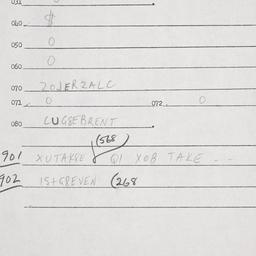 031
040 $
050 0
060 0
070 ZOJERZALC
071 0 072 0
080 LUGSEBRENT
(568)
901 XUTAKEE QI XOB TAKE - -
902 IS+GREVEN (268